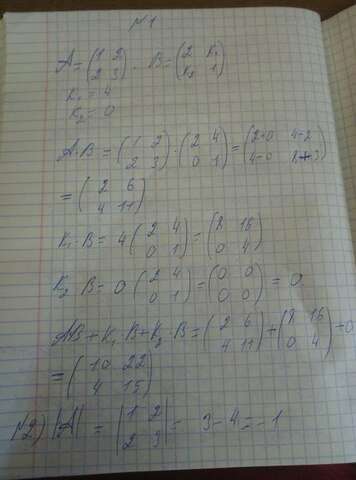 №1
A = (1 2
2 3) · B = (2 K₁
K₂ 1)
K₁ = 4
K₂ = 0
A·B = (1 2
2 3) · (2 4
0 1) = (2+0 4+2
4+0 8+3)
= (2 6
4 11)
K₁·B = 4 (2 4
0 1) = (8 16
0 4)
K₂ B = 0 (2 4
0 1) = (0 0
0 0) = 0
AB + K₁·B + K₂·B = (2 6
4 11) + (8 16
0 4) + 0
= (10 22
4 15)
№2) |A| = |1 2
2 3| = 3 - 4 = -1